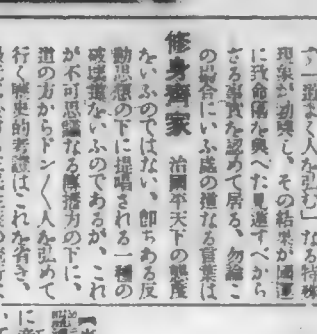 「道よく人を弘む」なる特殊
現象が勃興し、その結果が國運
に致命傷を與へた見逃すべから
ざる事實を認めて居る、勿論こ
の場合にいふ處の道なる言葉は
修身齊家 治國平天下の態度
をいふのではない、卽ちある反
動思想の下に提唱される一種の
破壞道をいふのであるが、これ
が不可思議なる傳播力の下に、
道の方からドン〱人を弘めて
行く歷史的考證は、これを省き、